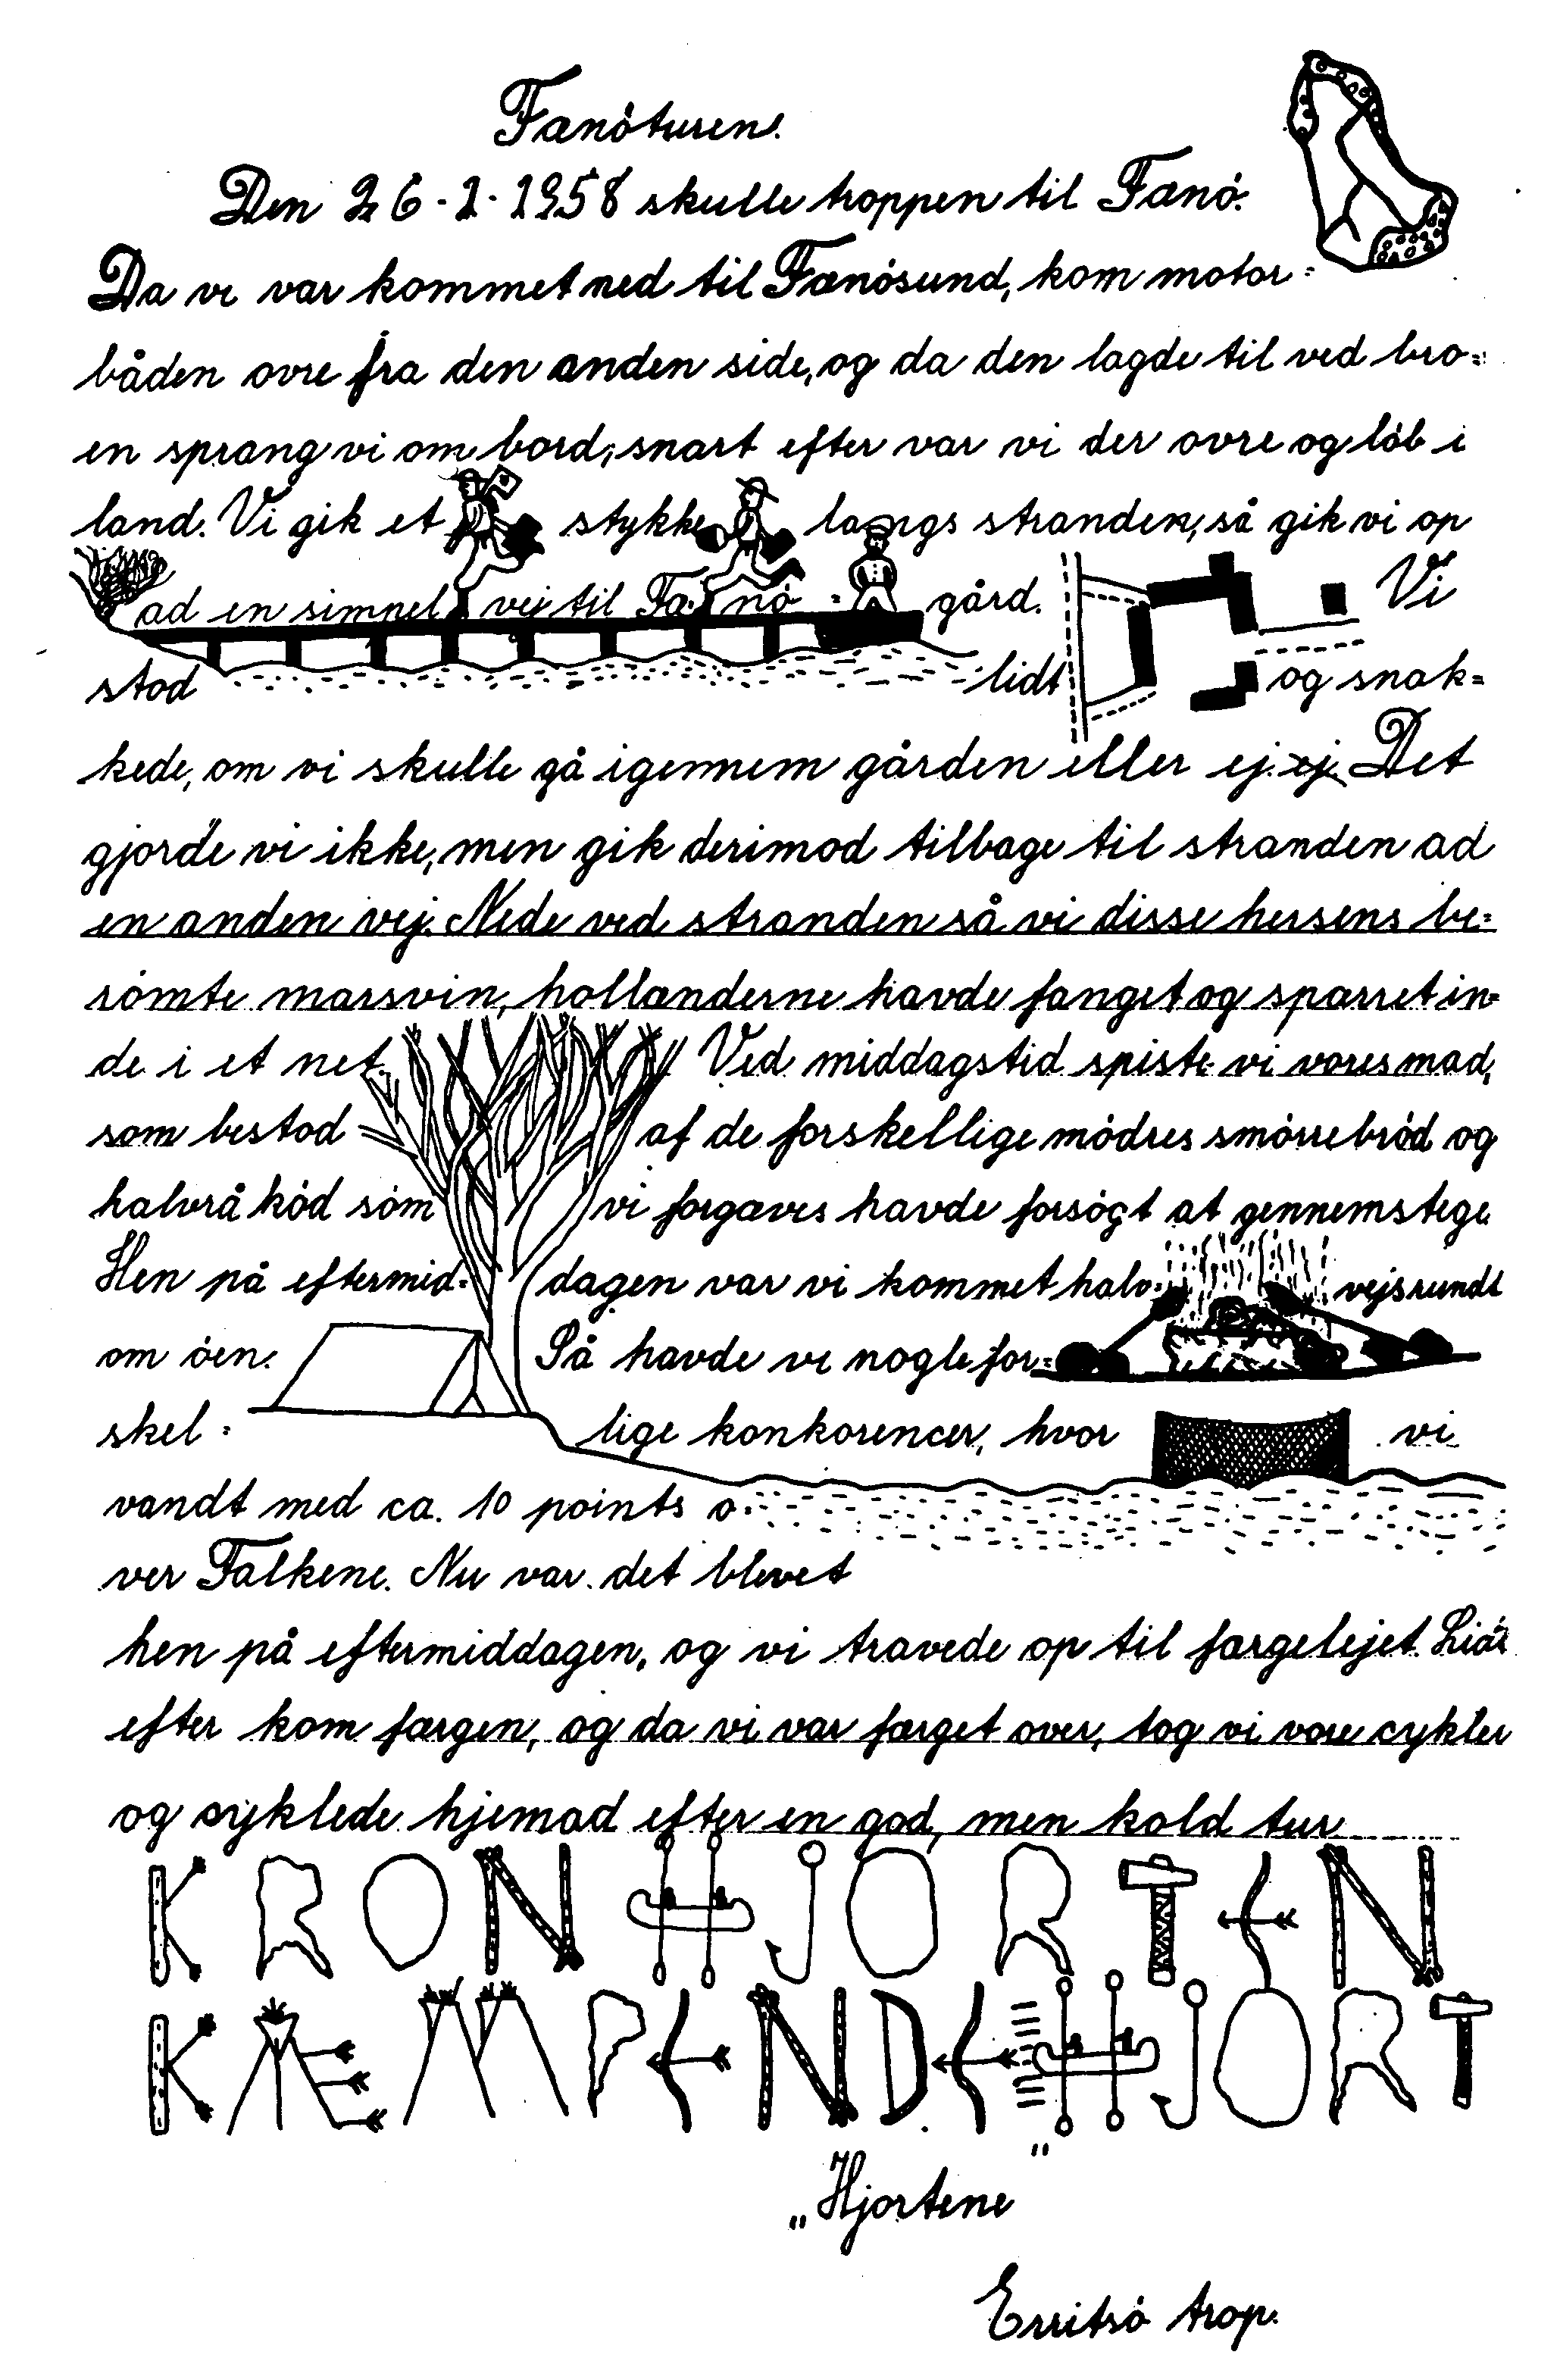 Fanöturen.
Den 26-1-1958 skulle troppen til Fanö.
Da vi var kommet ned til Fanösund, kom motor=
båden ovre fra den anden side, og da den lagde til ved bro=
en sprang vi om bord, snart efter var vi der ovre og löb i
land. Vi gik et stykke langs stranden, så gik vi op
ad en simpel vej til Fanö = gård. Vi
stod lidt og snak=
kede, om vi skulle gå igennem gården eller ej. ej. Det
gjorde vi ikke, men gik derimod tilbage til stranden ad
en anden vej. Nede ved stranden så vi disse hersens be=
römte marsvin, hollænderne havde fanget og spærret in=
de i et net. Ved middagstid spiste vi vores mad,
som bestod af de forskellige mödres smörrebröd og
halvrå köd som vi forgæves havde forsögt at gennemstege
Hen på eftermid= dagen var vi kommet halv= vejs rundt
om öen. Så havde vi nogle for=
skel= lige konkorencer, hvor vi
vandt med ca. 10 points o=
ver Falkene. Nu var det blevet
hen på eftermiddagen, og vi travede op til færgelejet.
efter kom færgen, og da vi var færget over, tog vi vore cykler
og cyklede hjemad efter en god, men kold tur
KRONHJORTEN
KÆMPENDE HJORT
„Hjortene"
Erritsö trop.